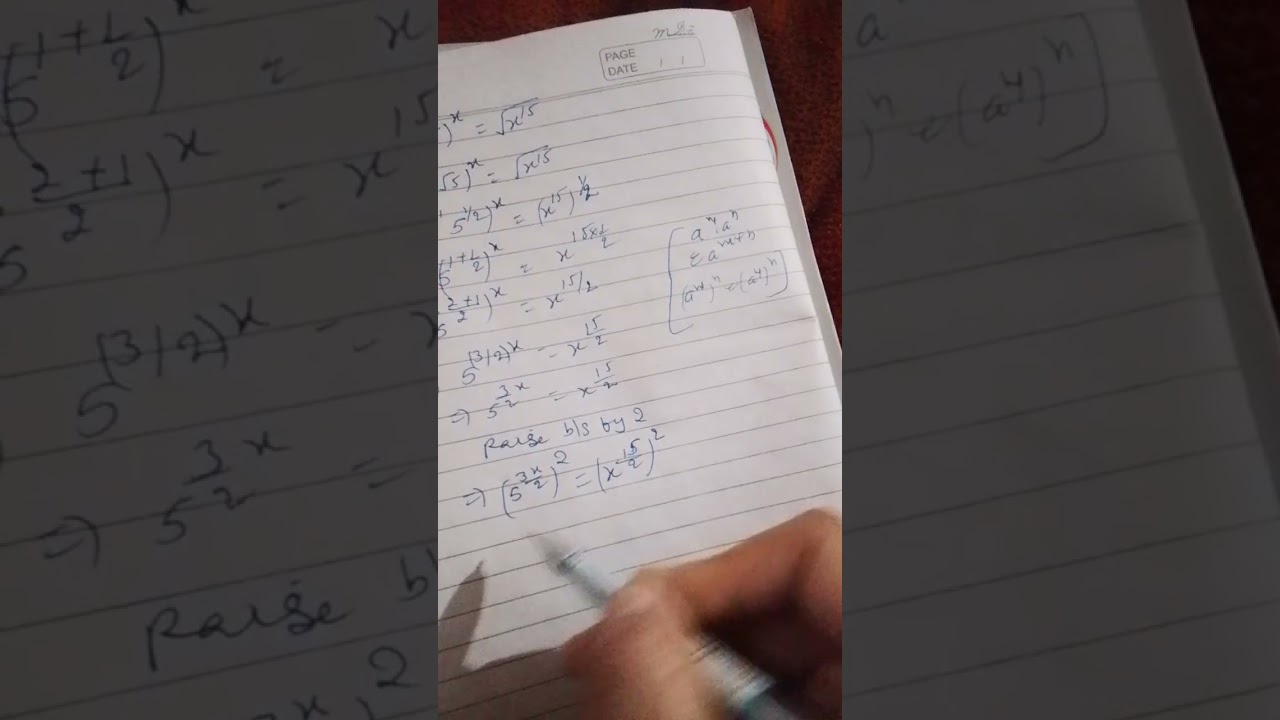 PAGE
DATE / /
)^x = √x^15
√5)^x = √x^15
5^1/2)^x = (x^15)^1/2
5^(1+1/2))^x = x^(15×1/2)
5^((2+1)/2))^x = x^15/2
5^(3/2)^x = x^(15/2)
⇒ 5^(3x/2) = x^(15/2)
Raise b/s by 2
⇒ (5^(3x/2))^2 = (x^(15/2))^2
a^m a^n
= a^(m+n)
(a^m)^n = (a^n)^n